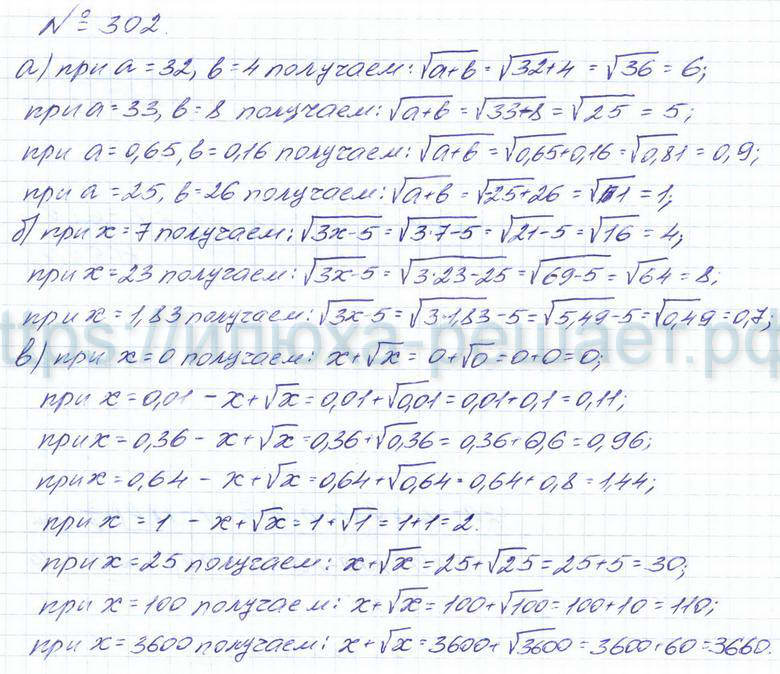 № 302.
а) при a = 32, b = 4 получаем: √a+b = √32+4 = √36 = 6;
при a = 33, b = 8 получаем: √a+b = √33+8 = √25 = 5;
при a = 0,65, b = 0,16 получаем: √a+b = √0,65+0,16 = √0,81 = 0,9;
при a = 25, b = 26 получаем: √a+b = √-25+26 = √1 = 1;
б) при x = 7 получаем: √3x-5 = √3·7-5 = √21-5 = √16 = 4;
при x = 23 получаем: √3x-5 = √3·23-25 = √69-5 = √64 = 8;
при x = 1,83 получаем: √3x-5 = √3·1,83-5 = √5,49-5 = √0,49 = 0,7;
https://илюха-решает.рф
в) при x = 0 получаем: x+√x = 0+√0 = 0+0 = 0;
при x = 0,01 - x+√x = 0,01+√0,01 = 0,01+0,1 = 0,11;
при x = 0,36 - x+√x = 0,36+√0,36 = 0,36+0,6 = 0,96;
при x = 0,64 - x+√x = 0,64+√0,64 = 0,64+0,8 = 1,44;
при x = 1 - x+√x = 1+√1 = 1+1 = 2.
при x = 25 получаем: x+√x = 25+√25 = 25+5 = 30;
при x = 100 получаем: x+√x = 100+√100 = 100+10 = 110;
при x = 3600 получаем: x+√x = 3600+√3600 = 3600+60 = 3660.